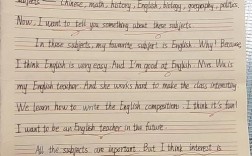 subjects — Chinese, math, history, English, biology, geography, politics.
Now, I want to tell you something about these subjects.
In those subjects, my favourite subject is English. Why? Because
I think English is very easy. And I'm good at English. Mrs. Wu is
my English teacher. And she works hard to make the class interesting.
We learn how to write the English composition. I think it's fun!
I want to be an English teacher in the future.
All the subjects are important. But I think interest is